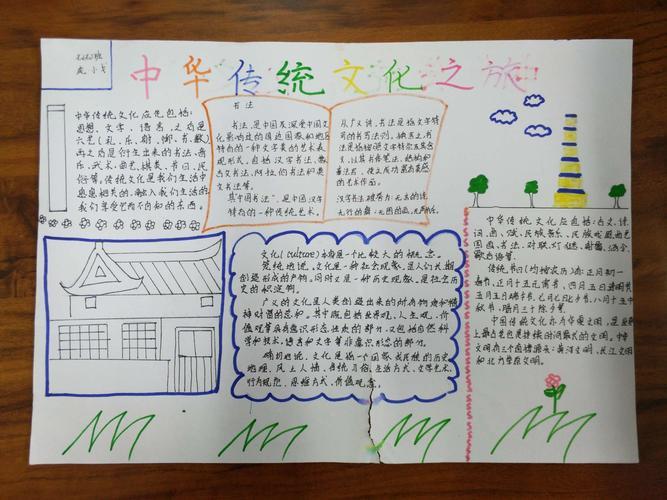 中华传统文化之旅
中华传统文化应包括:
思想、文字、语言,之后是
六艺(礼、乐、射、御、书、数)
再之后是衍生出来的书法、音
乐、武术、曲艺、棋类、节日、民
俗等。传统文化是我们生活中
息息相关的,融入我们生活的
我们享受它而不自知的东西。
书法
书法,是中国及深受中国文
化影响过的周边国家和地区
特有的一种文字美的艺术表
现形式。包括汉字书法、蒙
古文书法、阿拉伯书法和英
文书法等。
其“中国书法”,是中国汉字
特有的一种传统艺术。
从广义讲,书法是指文字符
号的书写法则。换言之,书
法是指按照文字特点及其含
义,以其书体笔法、结构和
章法写,使之成为富有美感
的艺术作品。
汉字书法被誉为:无言的诗,
无行的舞;无图的画,无声的乐。
文化(culture)本身是一个比较大的概念。
笼统地说,文化是一种社会现象,是人们长期
创造形成的产物。同时又是一种历史现象,是社会历
史的积淀物。
广义的文化是人类创造出来的所有物质和精
神财富的总和。其中既包括世界观、人生观、价
值观等具有意识形态性质的部分,又包括自然科
学和技术、语言和文字等非意识形态的部分。
确切地说,文化是指一个国家或民族的历史
地理、风土人情、传统习俗、生活方式、文学艺术、
行为规范、思维方式、价值观念。
中华传统文化应包括:古文、诗、
词、曲、赋、民族音乐、民族戏剧、曲艺
国画、书法、对联、灯谜、射覆、酒令、
歇后语等。
传统节日(均按农历)有:正月初一
春节、正月十五元宵节、四月五日清明节
五月五日端午节、七月七七夕节、八月十五中
秋节、腊月三十除夕等。
中国传统文化亦为华夏文明,是世界
上最古老也是持续时间最长的文明。中华
文明有三个直接源头:黄河文明、长江文明
和北方草原文明。